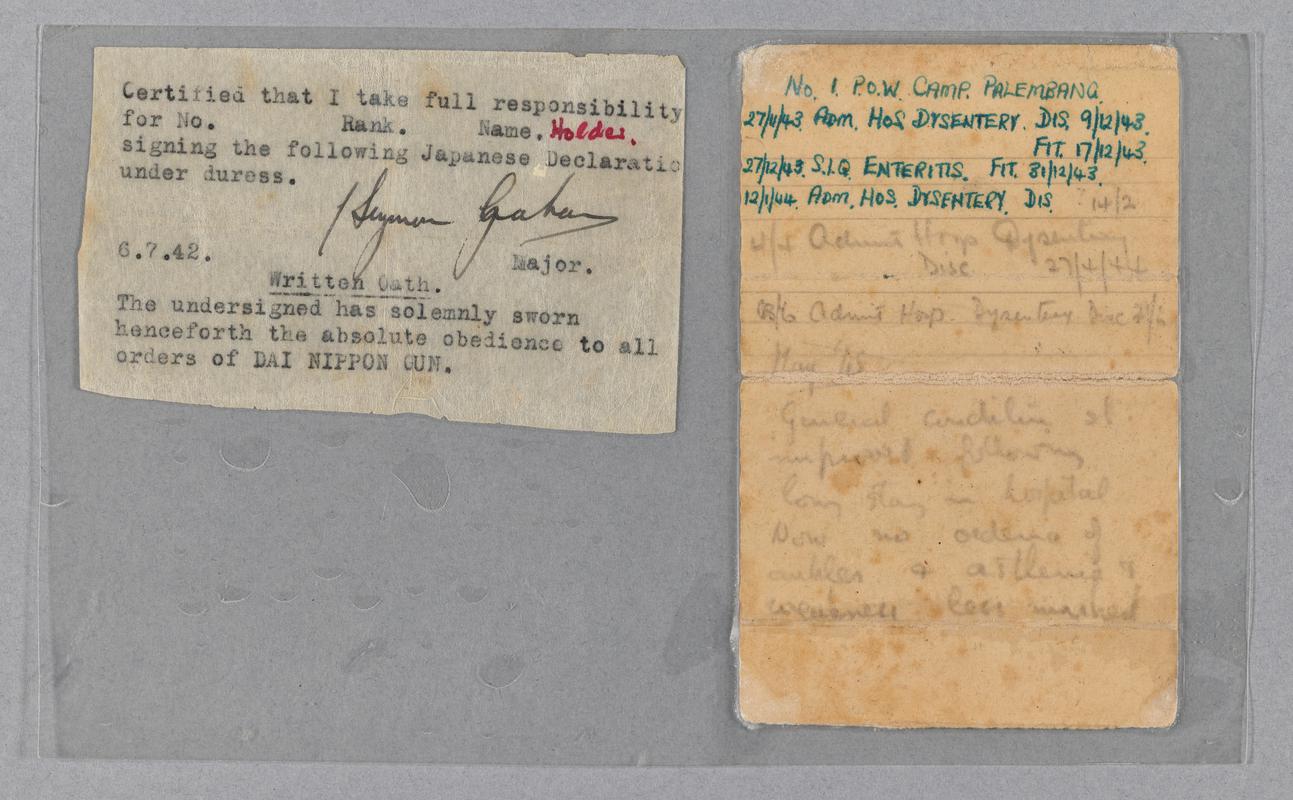 Certified that I take full responsibility
for No. Rank. Name. Holder.
signing the following Japanese Declaratio
under duress.
Seymour Graham
6.7.42. Major.
Written Oath.
The undersigned has solemnly sworn
henceforth the absolute obedience to all
orders of DAI NIPPON GUN.
No. 1. P.O.W. CAMP. PALEMBANG.
27/11/43. ADM. HOS. DYSENTERY. DIS. 9/12/43.
FIT. 17/12/43.
27/12/43. S.I.Q. ENTERITIS. FIT. 31/12/43.
12/1/44. ADM. HOS. DYSENTERY. DIS. 14/2
4/4 Admit Hosp Dysentery
Disc 27/4/44
Admit Hosp. Dysentery Disc
May '45
General condition
improved following
long stay in hospital
Now no oedema of
ankles &
weakness less marked